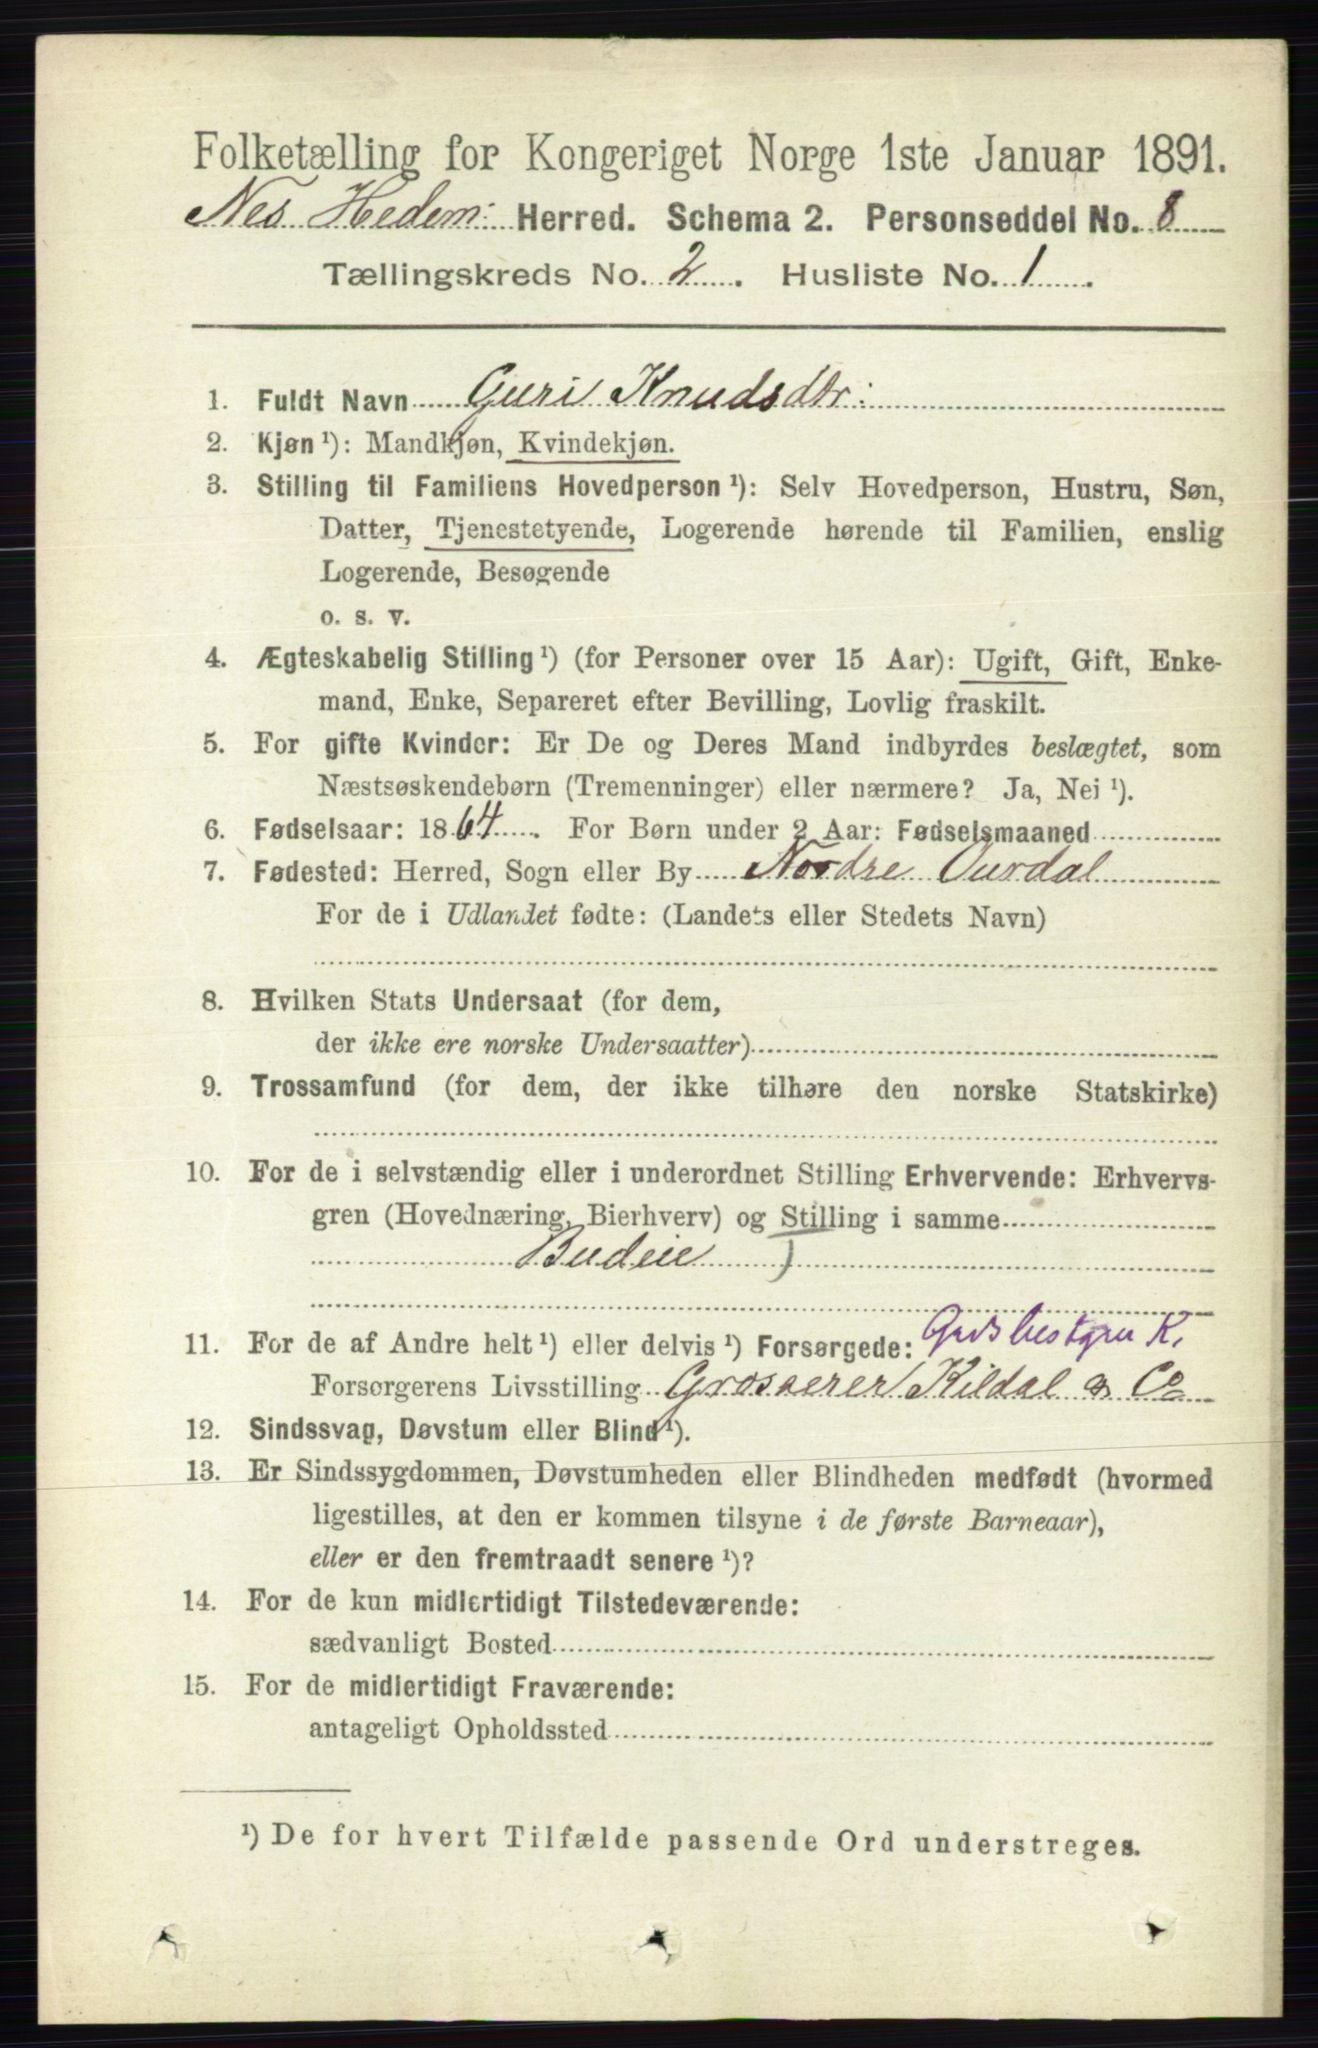 Folketælling for Kongeriget Norge 1ste Januar 1891.
Nes Hedem: Herred. Schema 2. Personseddel No. 8
Tællingskreds No. 2. Husliste No. 1.
1. Fuldt Navn Guri Knudsdtr:
2. Kjøn ¹): Mandkjøn, Kvindekjøn.
3. Stilling til Familiens Hovedperson ¹): Selv Hovedperson, Hustru, Søn,
Datter, Tjenestetyende, Logerende hørende til Familien, enslig
Logerende, Besøgende
o. s. v.
4. Ægteskabelig Stilling ¹) (for Personer over 15 Aar): Ugift, Gift, Enke-
mand, Enke, Separeret efter Bevilling, Lovlig fraskilt.
5. For gifte Kvinder: Er De og Deres Mand indbyrdes beslægtet, som
Næstsøskendebørn (Tremenninger) eller nærmere? Ja, Nei ¹).
6. Fødselsaar: 1864. For Børn under 2 Aar: Fødselsmaaned
7. Fødested: Herred, Sogn eller By Nordre Aurdal
For de i Udlandet fødte: (Landets eller Stedets Navn)
8. Hvilken Stats Undersaat (for dem,
der ikke ere norske Undersaatter)
9. Trossamfund (for dem, der ikke tilhøre den norske Statskirke)
10. For de i selvstændig eller i underordnet Stilling Erhvervende: Erhvervs-
gren (Hovednæring, Bierhverv) og Stilling i samme
Budeie )
11. For de af Andre helt ¹) eller delvis ¹) Forsørgede: K.
Forsørgerens Livsstilling Grosserer Kildal & Co
12. Sindssvag, Døvstum eller Blind ¹).
13. Er Sindssygdommen, Døvstumheden eller Blindheden medfødt (hvormed
ligestilles, at den er kommen tilsyne i de første Barneaar),
eller er den fremtraadt senere ¹)?
14. For de kun midlertidigt Tilstedeværende:
sædvanligt Bosted
15. For de midlertidigt Fraværende:
antageligt Opholdssted
¹) De for hvert Tilfælde passende Ord understreges.